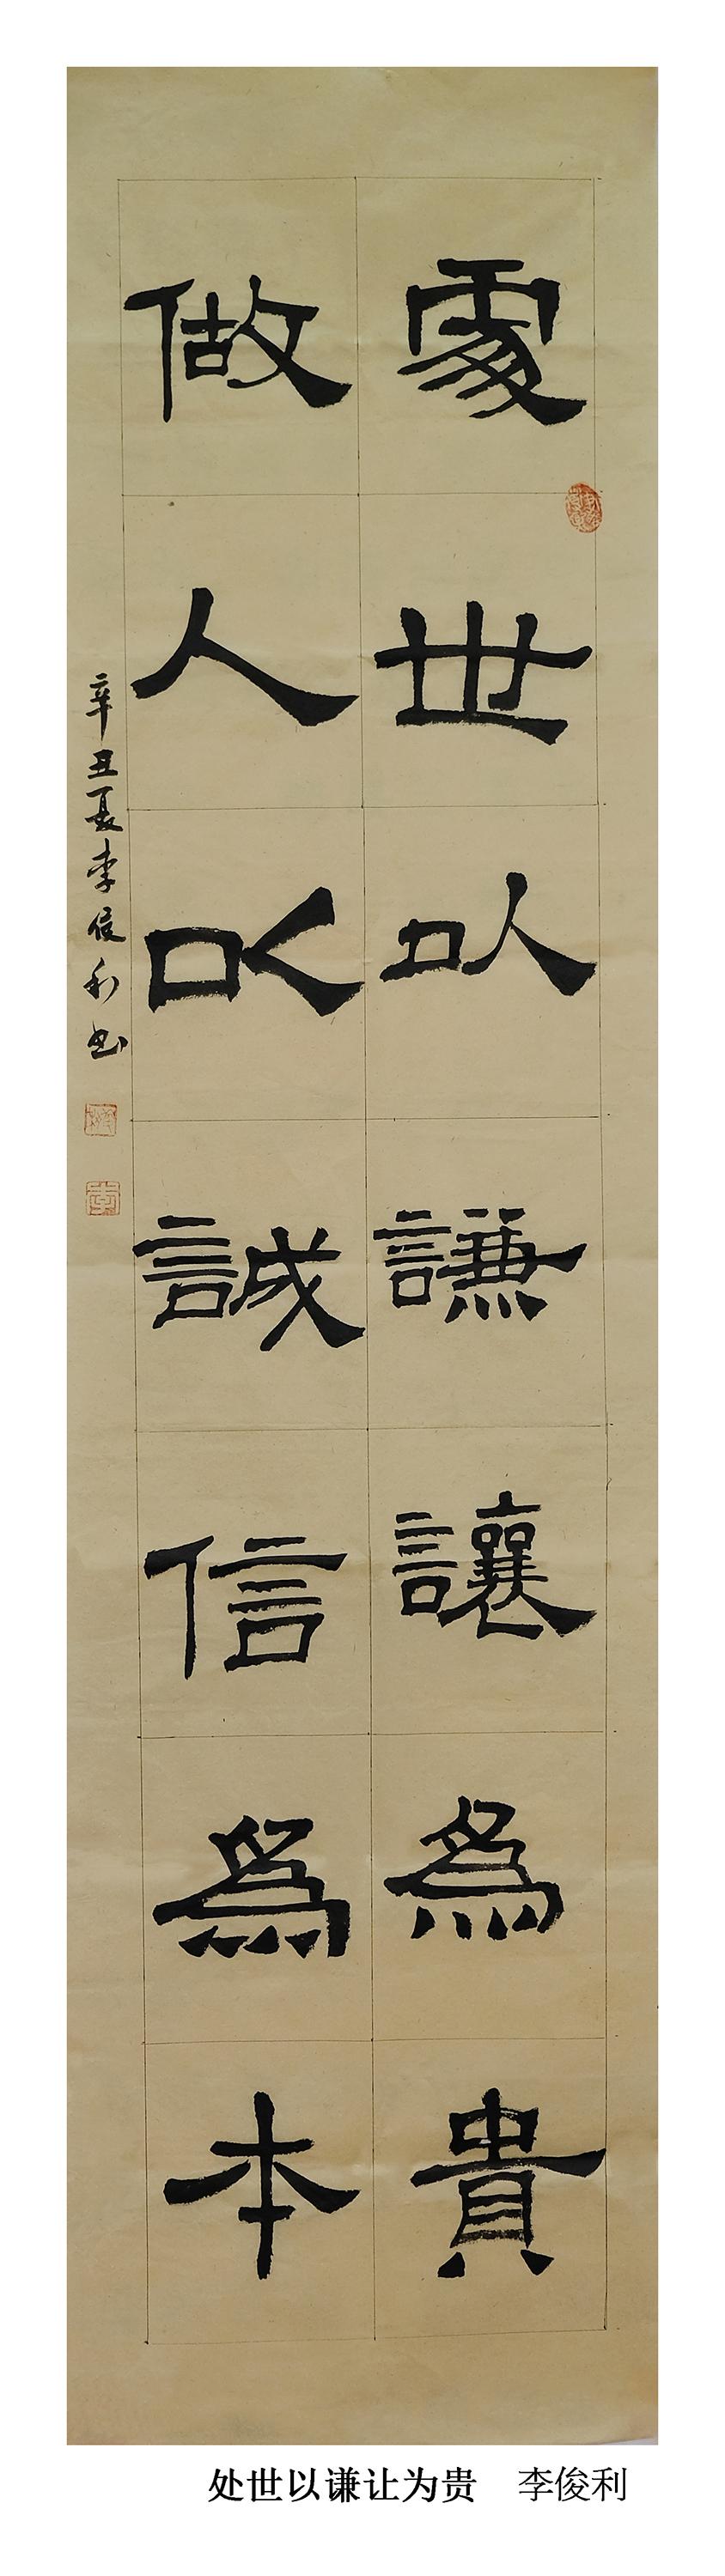 處世以謙讓為貴
做人以誠信為本
辛丑夏李俊利书
处世以谦让为贵 李俊利